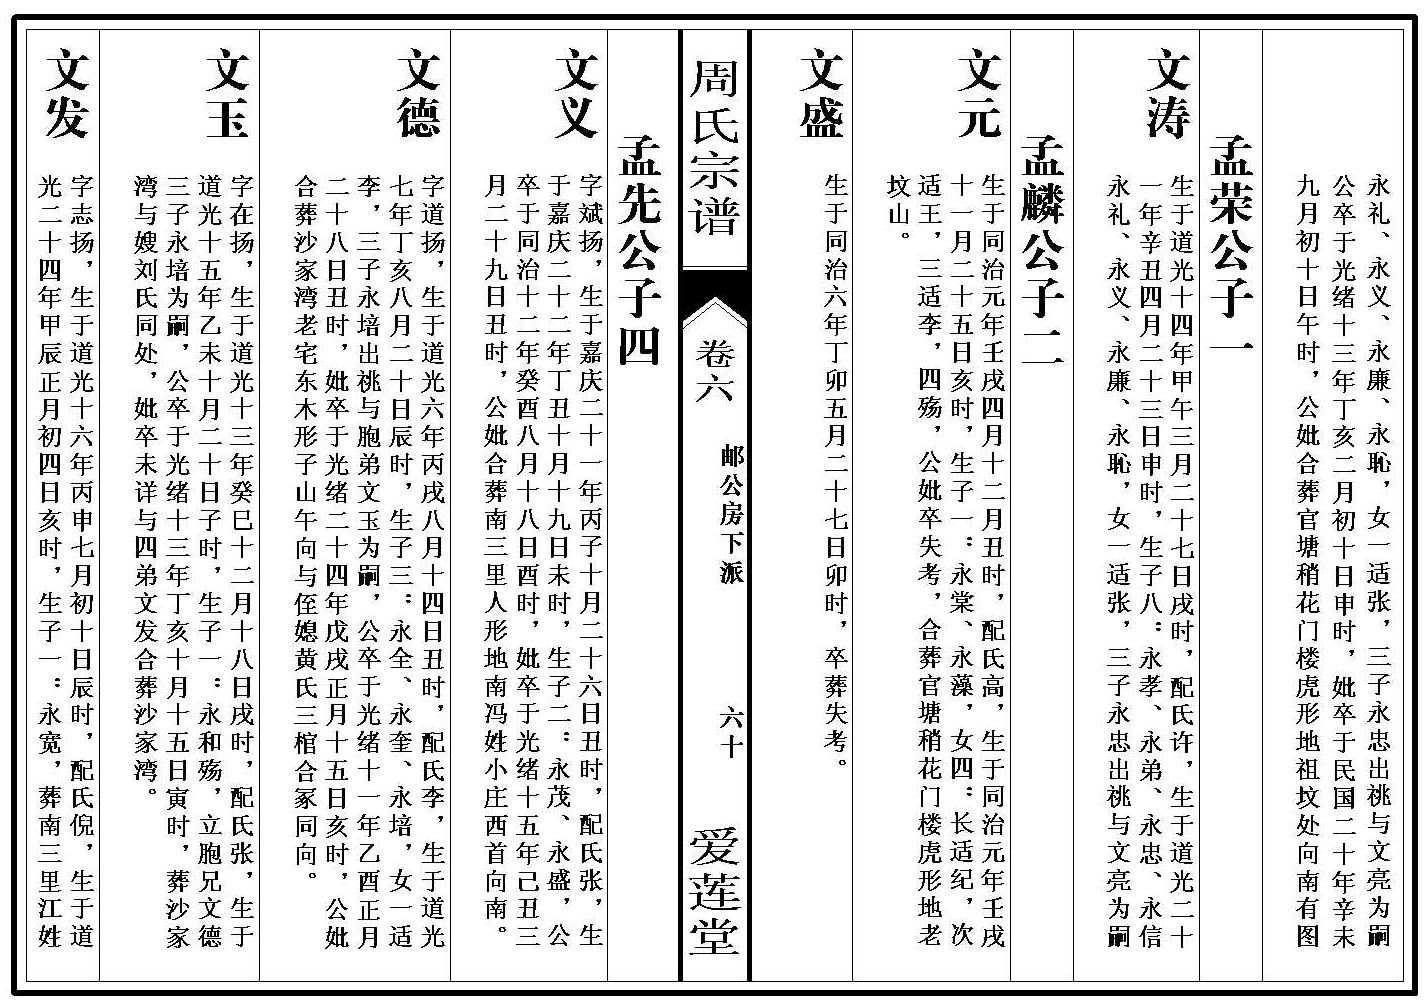 永礼、永义、永廉、永恥，女一适张，三子永忠出祧与文亮为嗣
公卒于光绪十三年丁亥二月初十日申时，妣卒于民国二十年辛未
九月初十日午时，公妣合葬官塘稍花门楼虎形地祖坟处向南有图
孟荣公子一
文涛
生于道光十四年甲午三月二十七日戌时，配氏许，生于道光二十
一年辛丑四月二十三日申时，生子八：永孝、永弟、永忠、永信
永礼、永义、永廉、永恥，女一适张，三子永忠出祧与文亮为嗣
孟麟公子二
文元
生于同治元年壬戌四月十二月丑时，配氏高，生于同治元年壬戌
十一月二十五日亥时，生子一：永棠、永藻，女四：长适纪，次
适王，三适李，四殇，公妣卒失考，合葬官塘稍花门楼虎形地老
坟山。
文盛
生于同治六年丁卯五月二十七日卯时，卒葬失考。
周氏宗谱
卷六
邮公房下派
六十
爱莲堂
孟先公子四
文义
字斌扬，生于嘉庆二十一年丙子十月二十六日丑时，配氏张，生
于嘉庆二十二年丁丑十月十九日未时，生子二：永茂、永盛，公
卒于同治十二年癸酉八月十八日酉时，妣卒于光绪十五年己丑三
月二十九日丑时，公妣合葬南三里人形地南冯姓小庄西首向南。
文德
字道扬，生于道光六年丙戌八月十四日丑时，配氏李，生于道光
七年丁亥八月二十日辰时，生子三：永全、永奎、永培，女一适
李，三子永培出祧与胞弟文玉为嗣，公卒于光绪十一年乙酉正月
二十八日丑时，妣卒于光绪二十四年戊戌正月十五日亥时，公妣
合葬沙家湾老宅东木形子山午向与侄媳黄氏三棺合冢同向。
文玉
字在扬，生于道光十三年癸巳十二月十八日戌时，配氏张，生于
道光十五年乙未十月二十日子时，生子一：永和殇，立胞兄文德
三子永培为嗣，公卒于光绪十三年丁亥十月十五日寅时，葬沙家
湾与嫂刘氏同处，妣卒未详与四弟文发合葬沙家湾。
文发
字志扬，生于道光十六年丙申七月初十日辰时，配氏倪，生于道
光二十四年甲辰正月初四日亥时，生子一：永宽，葬南三里江姓